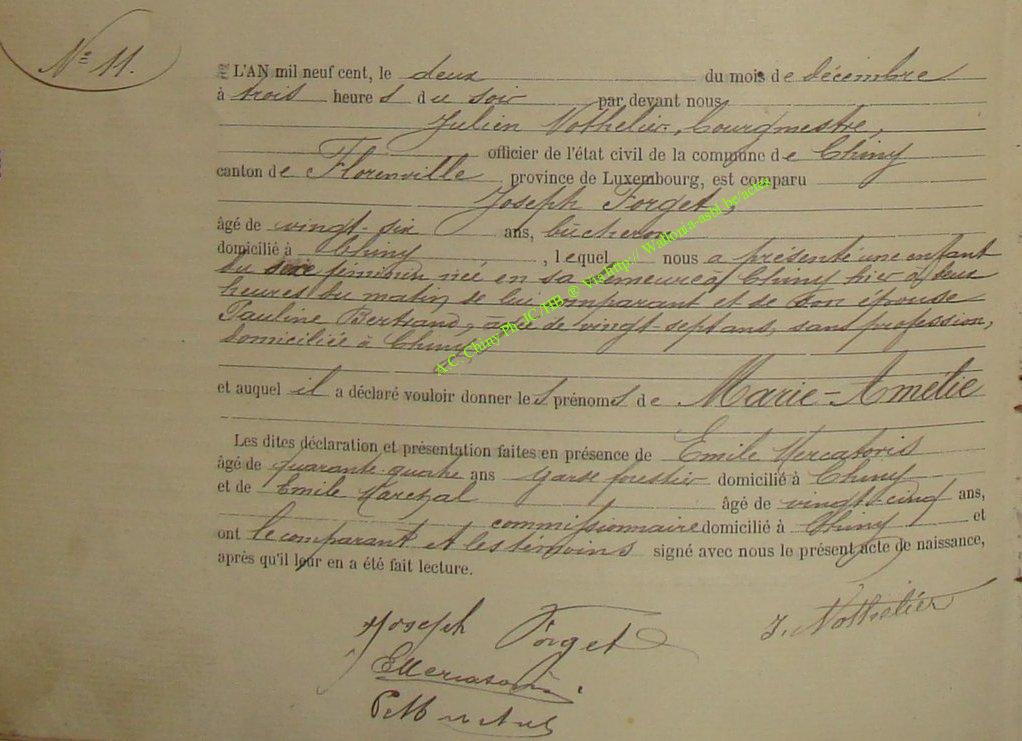 Nº 11.
L'AN mil neuf cent, le deux du mois de décembre
à trois heures du soir par devant nous
Julien Nothelier, bourgmestre,
officier de l'état civil de la commune de Chiny
canton de Florenville province de Luxembourg, est comparu
Joseph Forget,
âgé de vingt-six ans, bûcheron
domicilié à Chiny, lequel nous a présenté une enfant
du sexe féminin née en sa demeure à Chiny hier à deux
heures du matin, de lui comparant et de son épouse
Pauline Bertrand, âgée de vingt-sept ans, sans profession,
domiciliée à Chiny
et auquel il a déclaré vouloir donner les prénoms de Marie-Amélie
Les dites déclaration et présentation faites en présence de Emile Mercatoris
âgé de quarante-quatre ans garde forestier domicilié à Chiny
et de Emile âgé de vingt-cinq ans,
commissionnaire domicilié à Chiny et
ont le comparant et les témoins signé avec nous le présent acte de naissance,
après qu'il leur en a été fait lecture.
Joseph Forget
J. Nothelier
A.C. Chiny Ph. JC/HB ® Via http:// Wallonia-asbl.be/actes